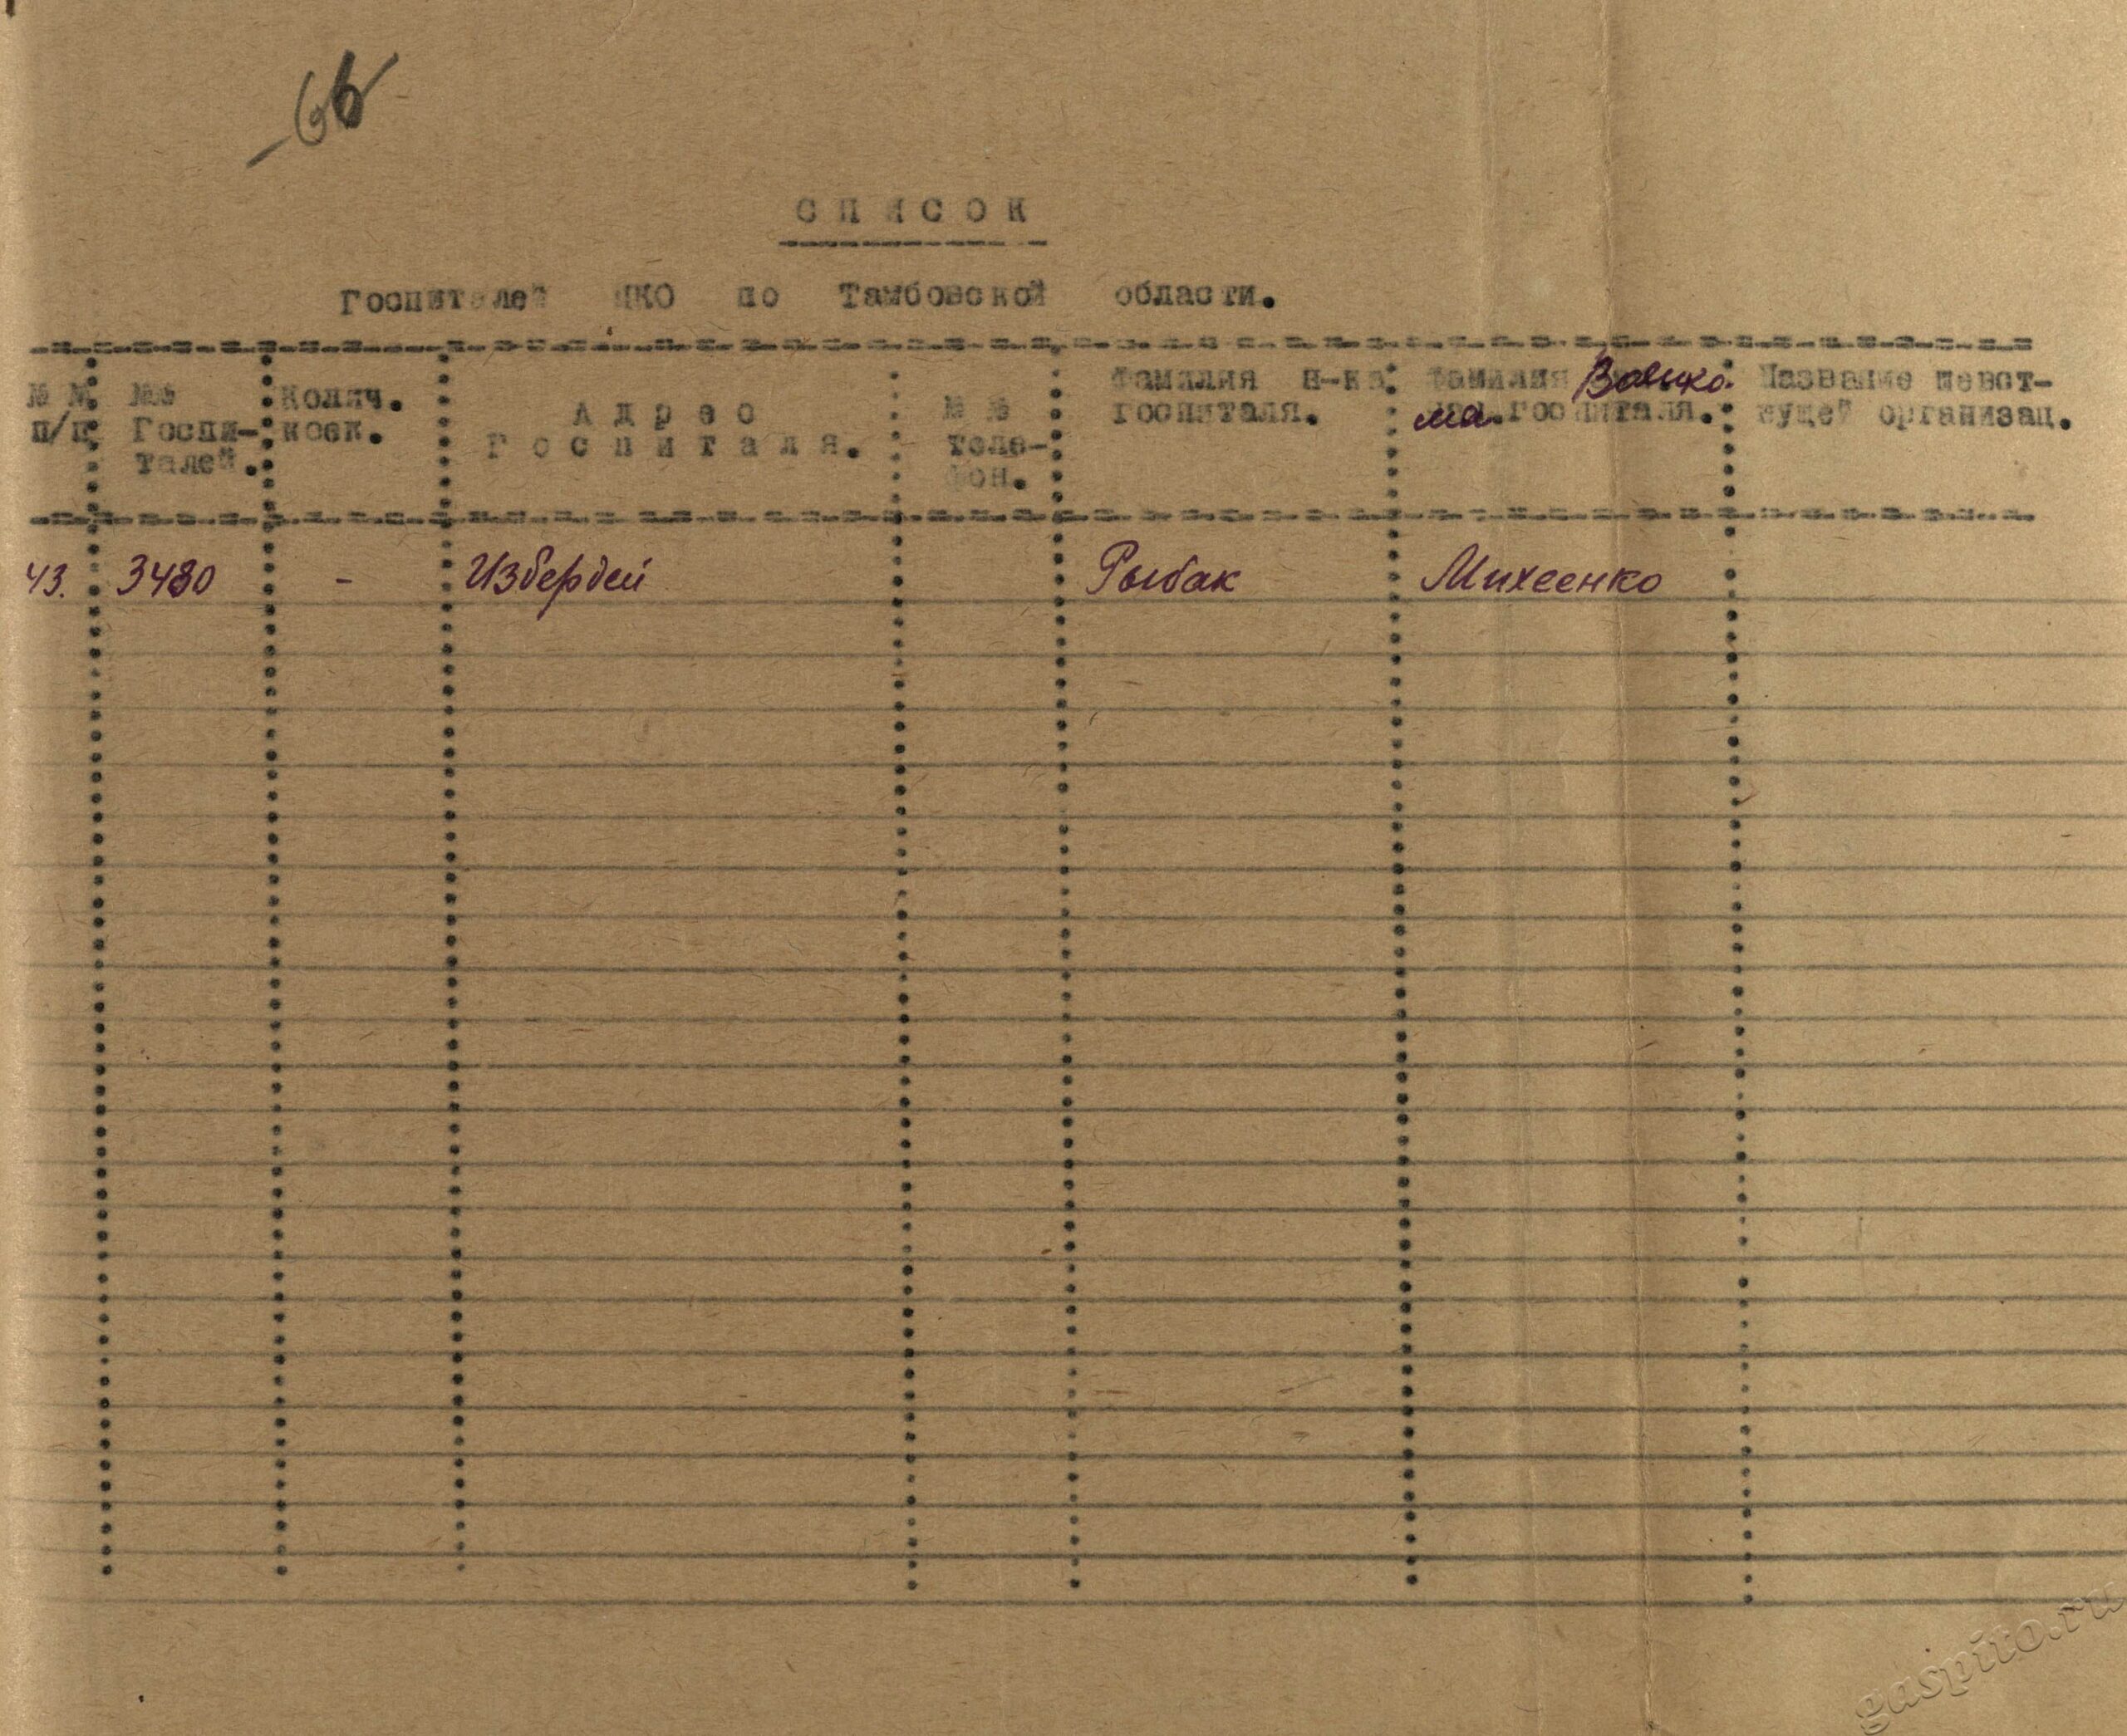 66
СПИСОК
Госпиталей НКО по Тамбовской области.
№ № п/п
№№ Госпи-талей.
Колич. коек.
Адрес Госпиталя.
№ № теле-фон.
Фамилия Н-ка госпиталя.
Фамилия Военко
ма госпиталя.
Название шевст-вующей организац.
43. 3480 - Избердей Рыбак Михеенко
gaspito.ru